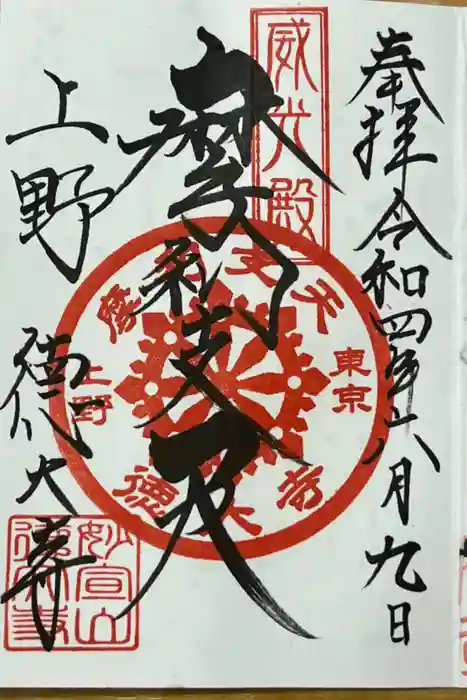 奉拝 令和四年六月九日
威光殿
摩利支天
摩利支天
東京
上野
徳大寺
上野 徳大寺
妙宣山
徳大寺